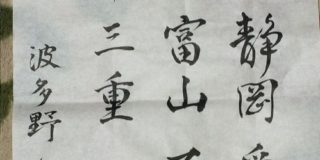 静岡
富山
三重
波多野